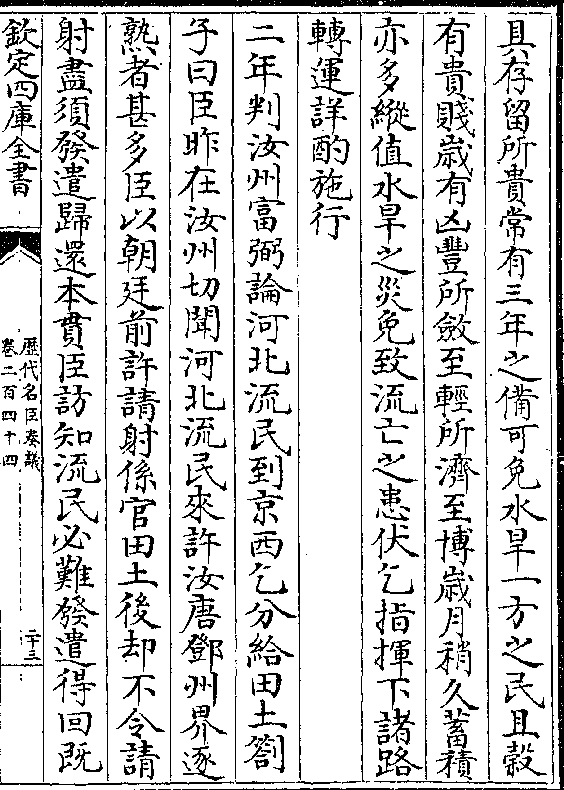 具存留所貴常有三年之備可免水旱一方之民且穀
有貴賤歳有凶豐所斂至輕所濟至博歳月稍久蓄積
亦多縱值水旱之災免致流亡之患伏乞指揮下諸路
轉運詳酌施行
二年判汝州富弼論河北流民到京西乞分給田土劄
子曰臣昨在汝州切聞河北流民來許汝唐鄧州界逐
熟者甚多臣以朝廷前許請射係官田土後却不令請
射盡須發遣歸還本貫臣訪知流民必難發遣得回既
欽定四庫全書
歷代名臣奏議
卷二百四十四
二十三